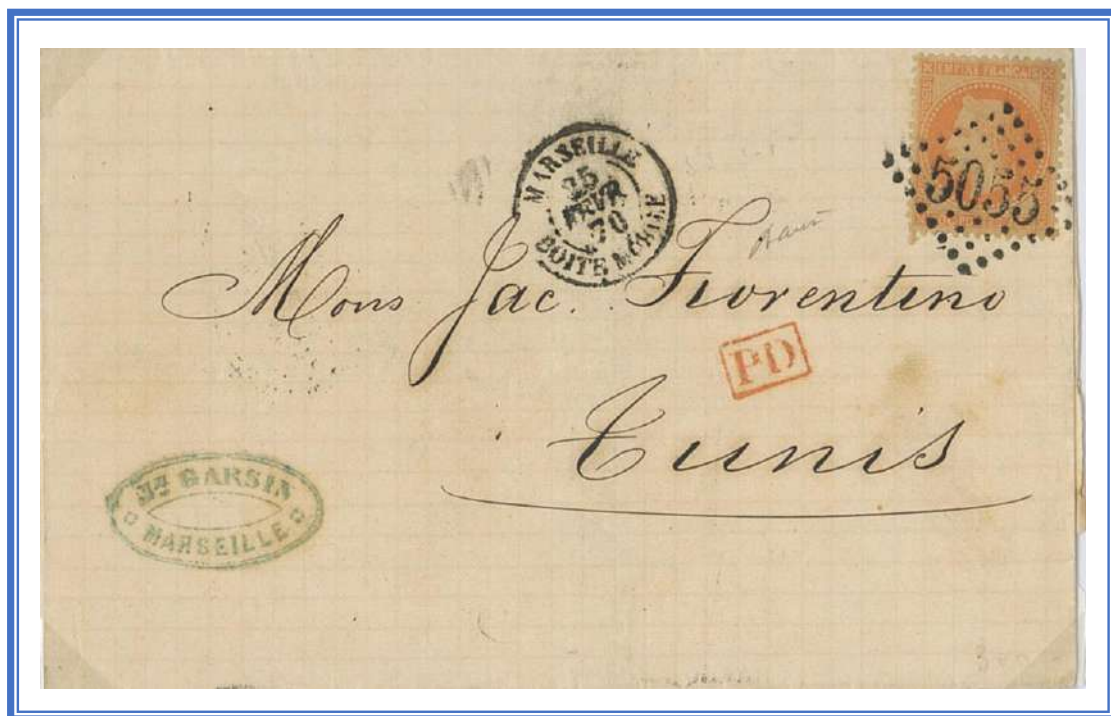 EMPIRE FRANÇAIS
5055
MARSEILLE
25
FEVR
70
BOITE MOBILE
Mons Jac. Fiorentino
PD
Tunis
GARSIN
MARSEILLE